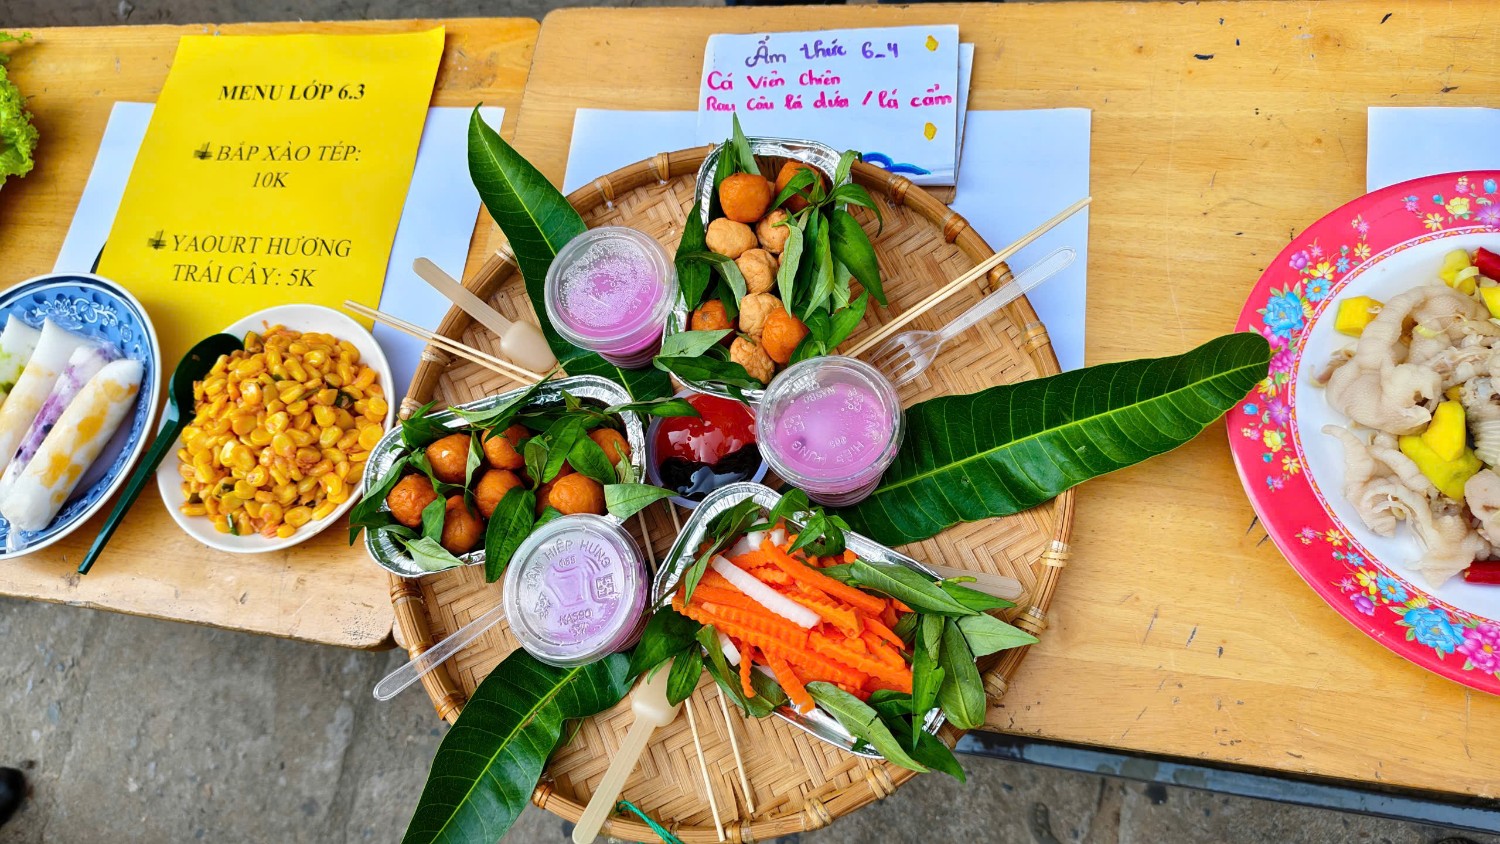 MENU LỚP 6.3
BẮP XÀO TÉP:
10K
YAOURT HƯƠNG
TRÁI CÂY: 5K
Ẩm thức 6_4
Cá Viên Chiên
Rau Câu lá dứa / lá cẩm
TÂN HIỆP HƯNG